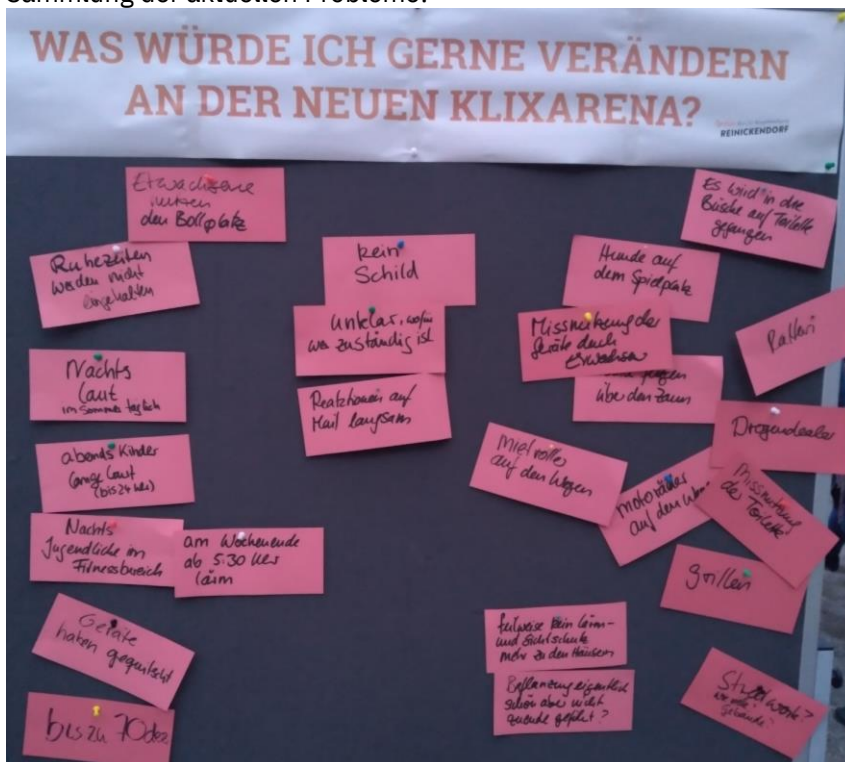 Sammlung der aktuellen Probleme:
WAS WÜRDE ICH GERNE VERÄNDERN
AN DER NEUEN KLIXARENA?
REINICKENDORF
Erwachsene
nutzen
den Bollplatz
Ruhezeiten
werden nicht
eingehalten
Nachts
laut
im Sommer täglich
abends Kinder
lange laut
(bis 24 Uhr)
Nachts
Jugendliche im
Fitnessbereich
am Wochenende
ab 5:30 Uhr
Lärm
Geräte
haben gequitscht
bis zu 70 dez
kein
Schild
unklar, wofür
wer zuständig ist
Reaktionen auf
Mail langsam
Es wird in die
Büsche auf Toilette
gegangen
Hunde auf
dem Spielplatz
Missnutzung der
Geräte durch
Erwachsene
über den Zaun
Mietroller
auf den Wegen
Motorräder
auf den
Drogendealer
Missnutzung
der Toilette
Grillen
teilweise kein Lärm-
und Sichtschutz
mehr zu den Häusern
Bepflanzung eigentlich
schön aber nicht
gepflegt?
Gebäude